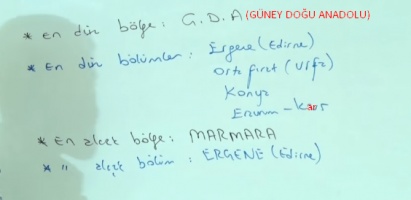 * en düz bölge: G.D.A (GÜNEY DOĞU ANADOLU)
* en düz bölümler: Ergene (Edirne)
Orta fırat (Urfa)
Konya
Erzurum - kar
* En alçak bölge: MARMARA
* " alçak bölüm: ERGENE (Edirne)